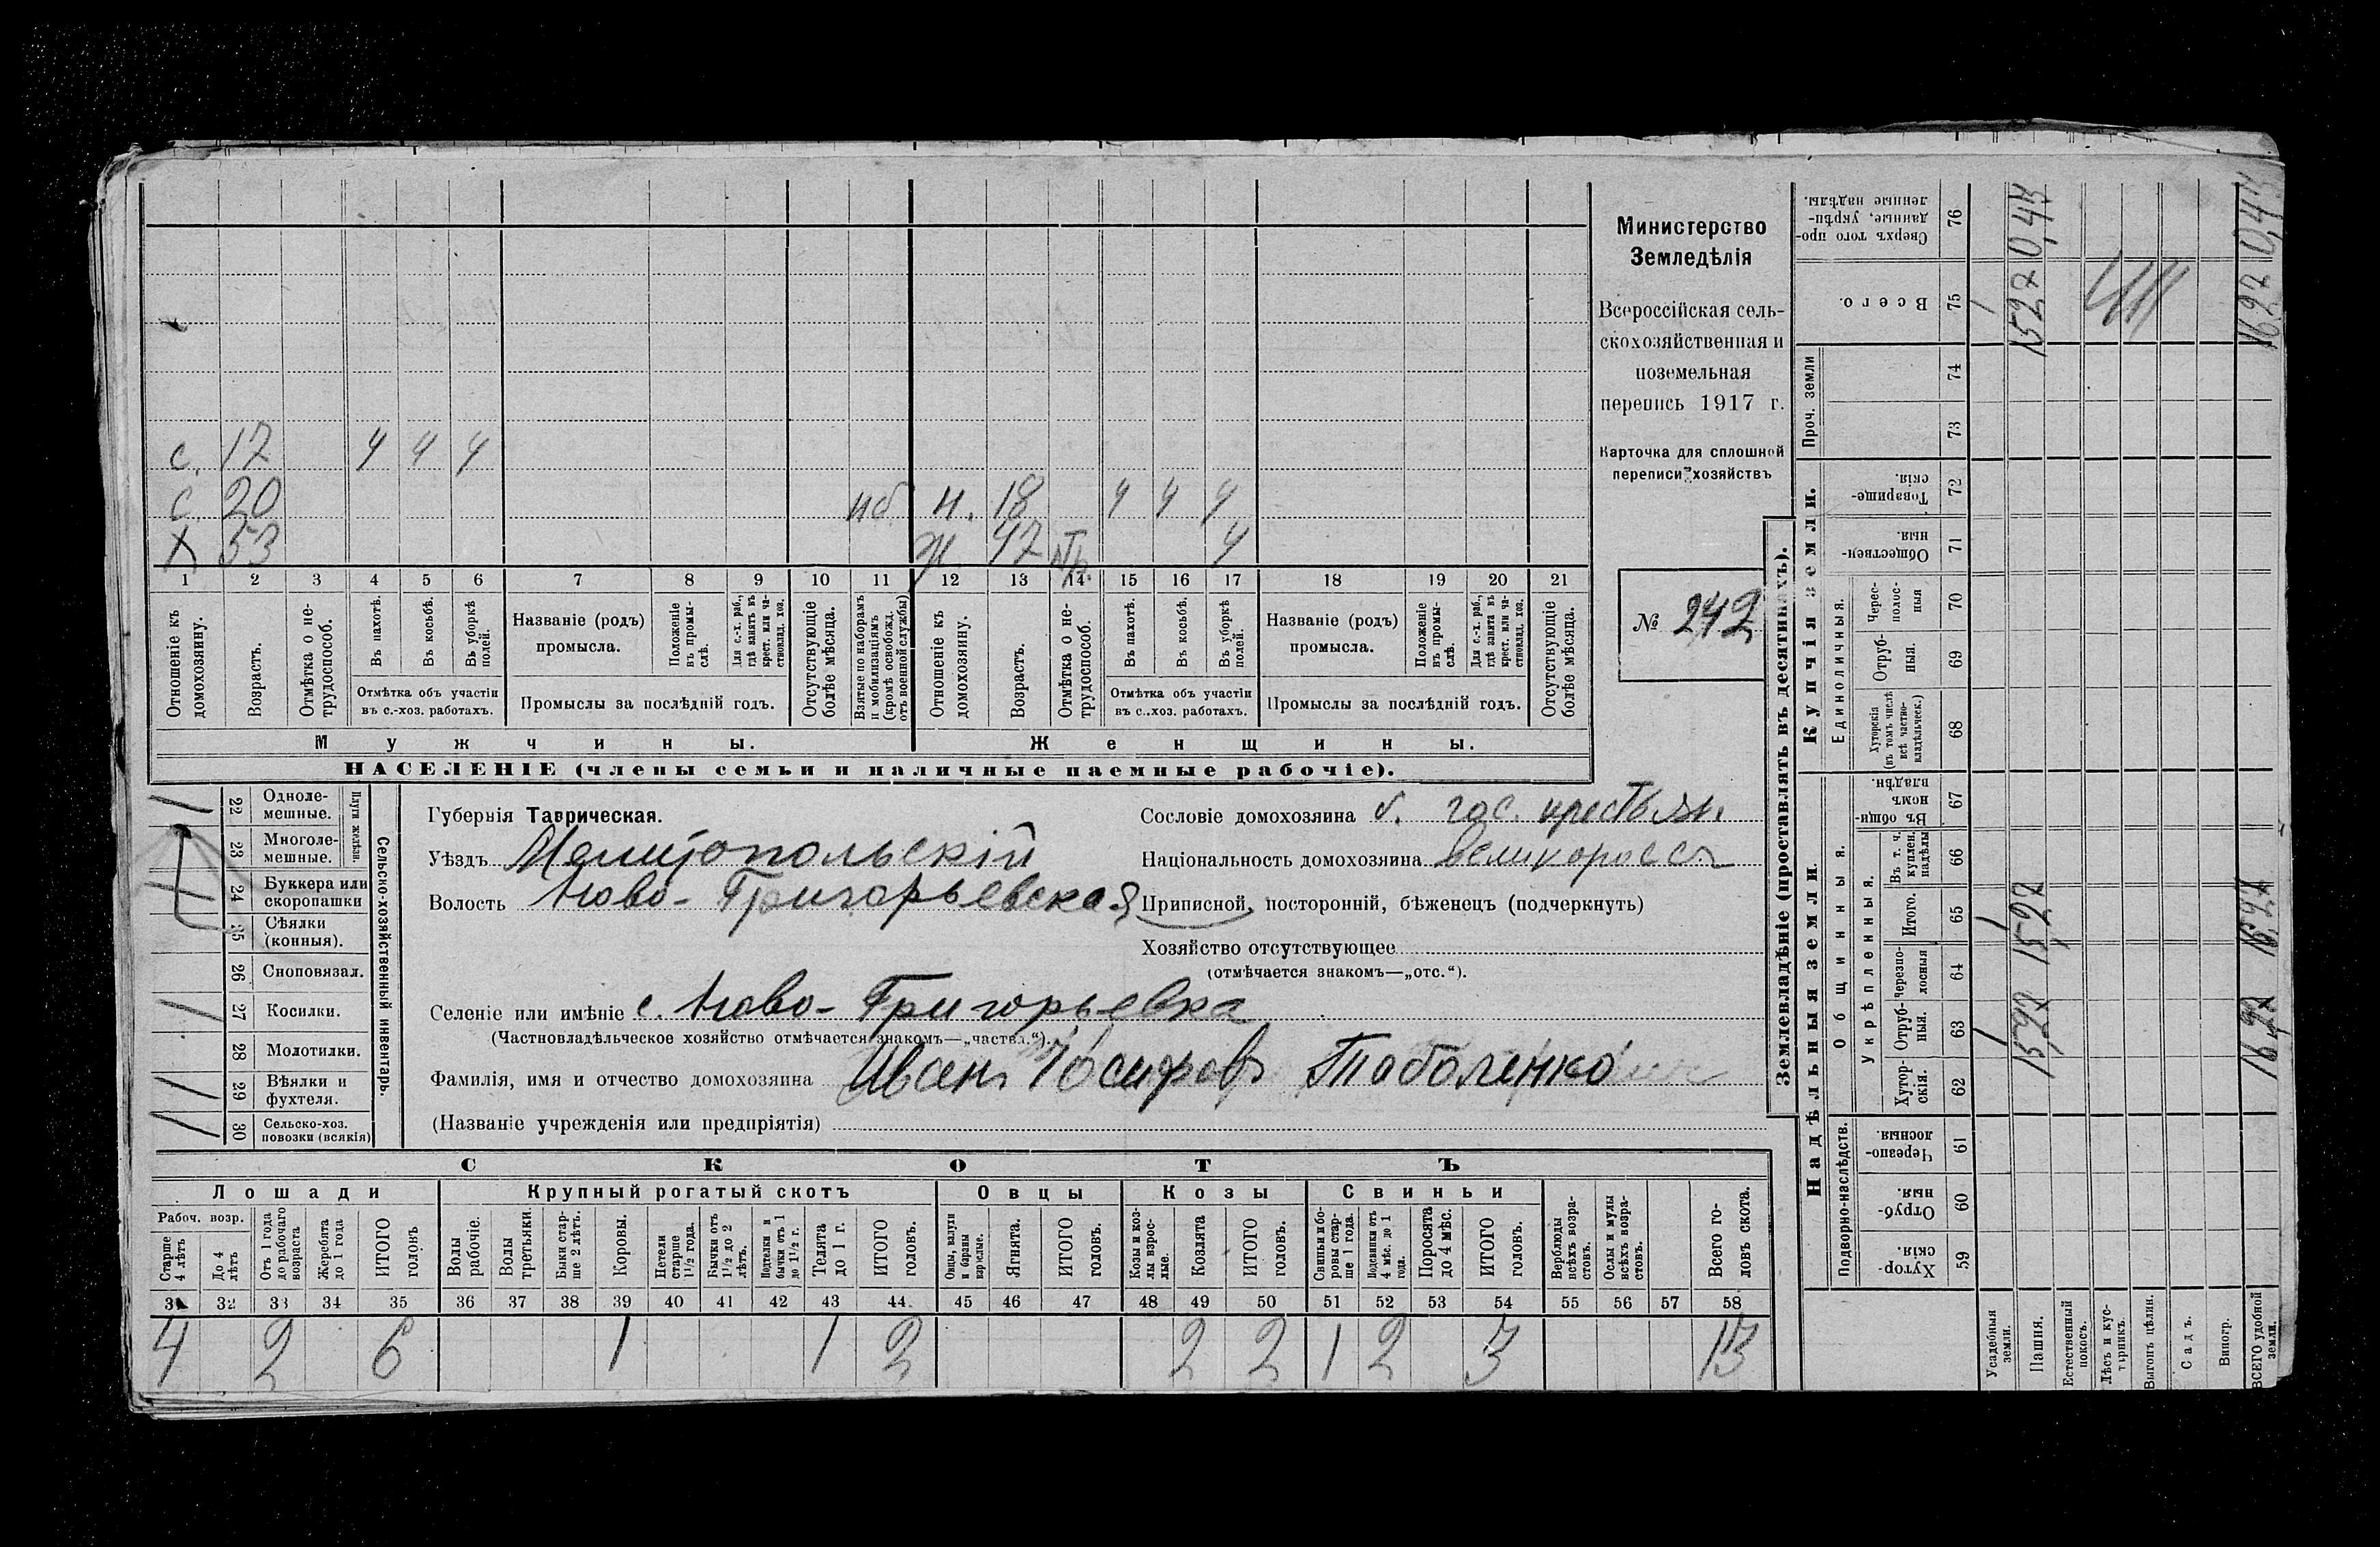 с. 17 4 4 4
с 20 мб н. 18 4 4 4
х 53 ж 47 4
1 2 3 4 5 6 7 8 9 10 11 12 13 14 15 16 17 18 19 20 21
Отношеніе къ домохозяину.
Возрастъ.
Отмѣтка о нетрудоспособ.
Въ пахотѣ.
Въ косьбѣ.
Въ уборкѣ полей.
Отмѣтка объ участіи
въ с.-хоз. работахъ.
Названіе (родъ)
промысла.
Положеніе въ промыслѣ.
Для с.-х. раб., гдѣ занятъ въ крест. или частновлад. хоз.
Промыслы за послѣдній годъ.
Отсутствующіе болѣе мѣсяца.
Взятые по наборамъ и мобилизаціямъ (кромѣ освобожд. отъ военной службы)
Отношеніе къ домохозяину.
Возрастъ.
Отмѣтка о нетрудоспособ.
Въ пахотѣ.
Въ косьбѣ.
Въ уборкѣ полей.
Отмѣтка объ участіи
въ с.-хоз. работахъ.
Названіе (родъ)
промысла.
Положеніе въ промыслѣ.
Для с.-х. раб., гдѣ занята въ крест. или частновлад. хоз.
Промыслы за послѣдній годъ.
Отсутствующіе болѣе мѣсяца.
Мужчины. Женщины.
НАСЕЛЕНІЕ (члены семьи и наличные наемные рабочіе).
Министерство
Земледѣлія
Всероссійская сель-
скохозяйственная и
поземельная
перепись 1917 г.
Карточка для сплошной
переписи хозяйствъ
№ 242
22 Одноле-
мешные.
23 Многоле-
мешные.
Плуги желѣзн.
24 Буккера или
скоропашки
25 Сѣялки
(конныя).
26 Сноповязал.
27 Косилки.
28 Молотилки.
29 Вѣялки и
фухтеля.
30 Сельско-хоз.
повозки (всякія)
Сельско-хозяйственный инвентарь.
Губернія Таврическая.
Уѣздъ Мелитопольскій
Волость Ново-Григорьевская
Сословіе домохозяина б. гос. крестьян.
Національность домохозяина великоросс
Приписной, посторонній, бѣженецъ (подчеркнуть)
Хозяйство отсутствующее
(отмѣчается знакомъ—„отс.“).
Селеніе или имѣніе с. Ново-Григорьевка
(Частновладѣльческое хозяйство отмѣчается знакомъ—„частвл.“).
Фамилія, имя и отчество домохозяина Иванъ Іосифовъ Таболенко
(Названіе учрежденія или предпріятія)
СКОТЪ
Лошади Крупный рогатый скотъ Овцы Козы Свиньи
Рабоч. возр.
Старше 4 лѣтъ
До 4 лѣтъ
Отъ 1 года до рабочаго возраста
Жеребята до 1 года
ИТОГО головъ
Волы рабочіе.
Волы третьяки.
Быки старше 2 лѣтъ.
Коровы.
Нетели старше 1½ года.
Бычки отъ 1½ до 2 лѣтъ.
Подтелки и бычки отъ 1 до 1½ г.
Телята до 1 г.
ИТОГО головъ.
Овцы, валухи и бараны взрослые.
Ягнята.
ИТОГО головъ.
Козы и козлы взрослые.
Козлята
ИТОГО головъ.
Свиньи и боровы старше 1 года.
Подсвинки отъ 4 мѣс. до 1 года.
Поросята до 4 мѣс.
ИТОГО головъ.
Верблюды всѣхъ возрастовъ.
Ослы и мулы всѣхъ возрастовъ.
Всего головъ скота.
31 32 33 34 35 36 37 38 39 40 41 42 43 44 45 46 47 48 49 50 51 52 53 54 55 56 57 58
4 2 6 1 1 2 2 2 1 2 3 13
Землевладѣніе (проставлять въ десятинахъ).
Надѣльныя земли. Купчія земли.
Подворно-наслѣдств. Общинныя. Единоличныя. Проч. земли
Укрѣпленныя.
Хуторскія. 59
Отрубныя. 60
Черезполосныя. 61
Хуторскія. 62
Отрубныя. 63
Черезполосныя 64
Итого. 65
Въ т. ч. куплен. надѣлы 66
Въ общинномъ владѣн. 67
Хуторскія (въ томъ числѣ всѣ частновладѣльческ.) 68
Отрубныя. 69
Чересполосныя 70
Общественныя. 71
Товарищескія. 72
73
74
Всего. 75
Сверхъ того проданные, укрѣпленные надѣлы. 76
Усадебныя земли. 1 1 1
Пашня. 15,27 15,27 1527 0,45
Естественный покосъ.
Лѣсъ и кустарникъ.
Выгонъ цѣлин.
Садъ.
Виногр.
ВСЕГО удобной земли. 16,27 16,27 1627 0,45